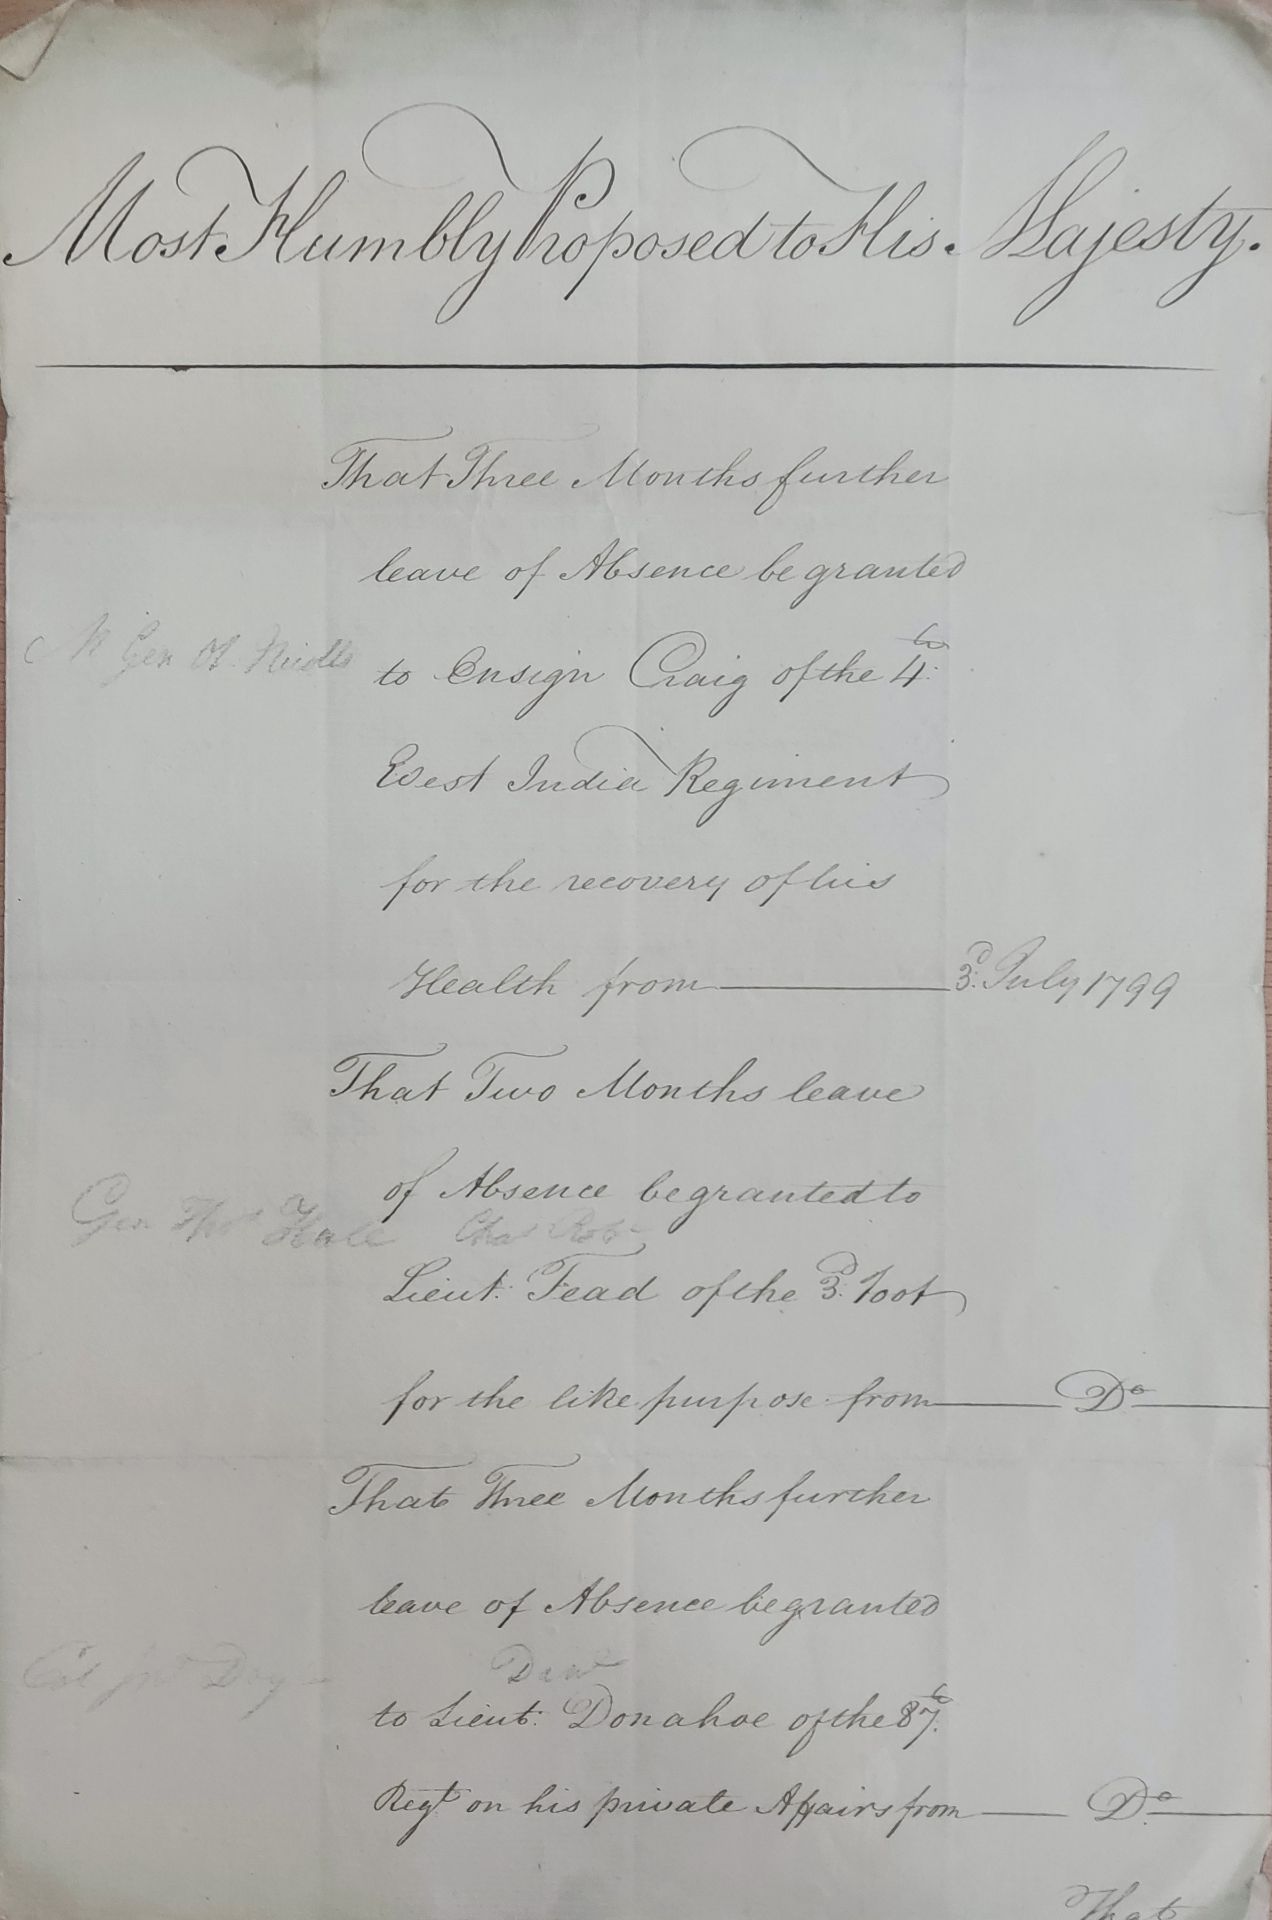 Most Humbly Proposed to His Majesty.
That Three Months further
leave of Absence be granted
M Gen Ol. Nicolls
to Ensign Craig of the 4th
West India Regiment
for the recovery of his
Health from 3d. July 1799
That Two Months leave
of Absence be granted to
Gen Thos Hall Chas Robt
Lieut. Fead of the 3d. Foot
for the like purpose from Do
That Three Months further
leave of Absence be granted
Col Day Danl
to Lieut. Donahoe of the 87th
Regt on his private Affairs from Do
That